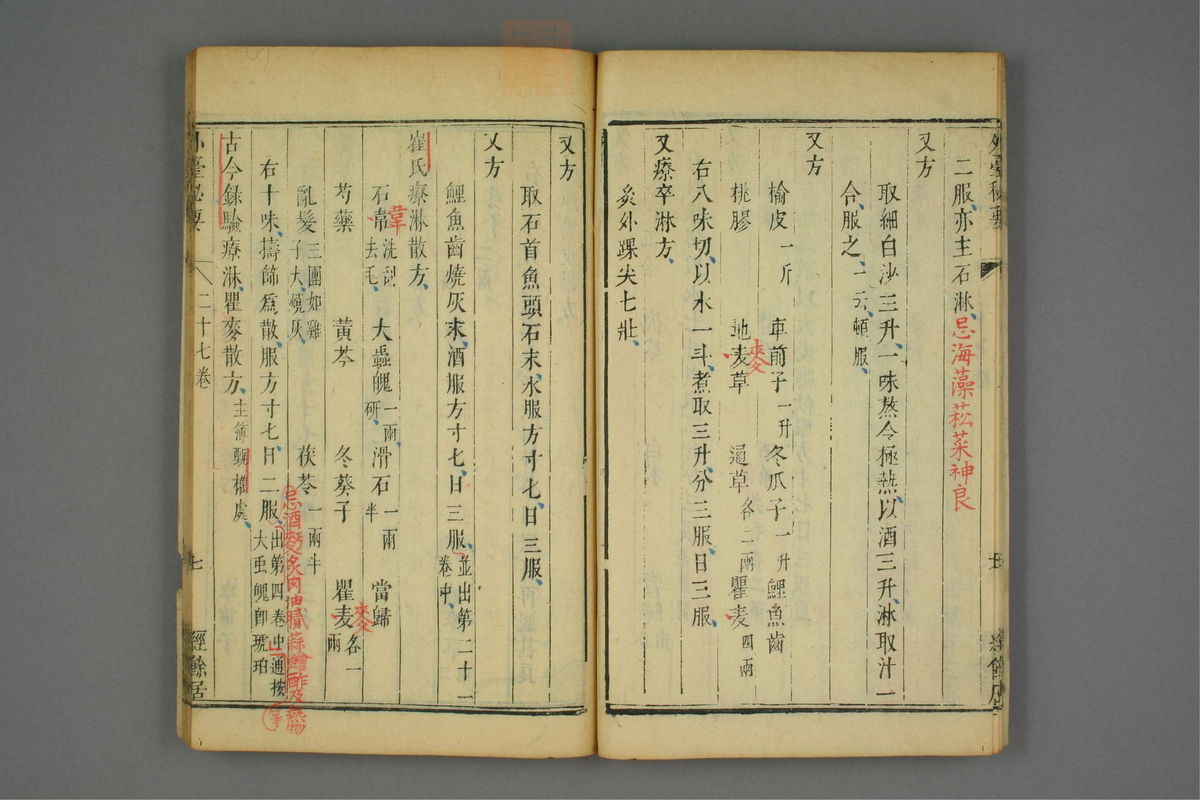 外臺秘要
二服亦主石淋忌海藻菘菜神良
又方
取細白沙三升一味熬令極熱以酒三升淋取汁一
合服之一云頓服
又方
榆皮一斤 車前子一升 冬瓜子一升 鯉魚齒
桃膠 地麦草 麥 通草各二兩 瞿麦四兩
右八味切以水一斗煮取三升分三服日三服
又療卒淋方
炙外踝尖七壯
又方
取石首魚頭石末水服方寸匕日三服
又方
鯉魚齒燒灰末酒服方寸匕日三服並出第二十一卷中
崔氏療淋散方
石帛 韋 洗刮去毛 大蟲魄一兩研 滑石一兩半 當歸
芍藥 黃芩 冬葵子 瞿麦 麥 各一兩
亂髮三團如雞子大燒灰 茯苓一兩半
右十味擣篩為散服方寸匕日二服出第四卷中通按大䖝魄卽琥珀
忌酒麥炙肉油膩蒜鱠酢及熱物等
古今錄驗療淋瞿麥散方主簿甄權處
外臺秘要 二十七卷 七 經餘居